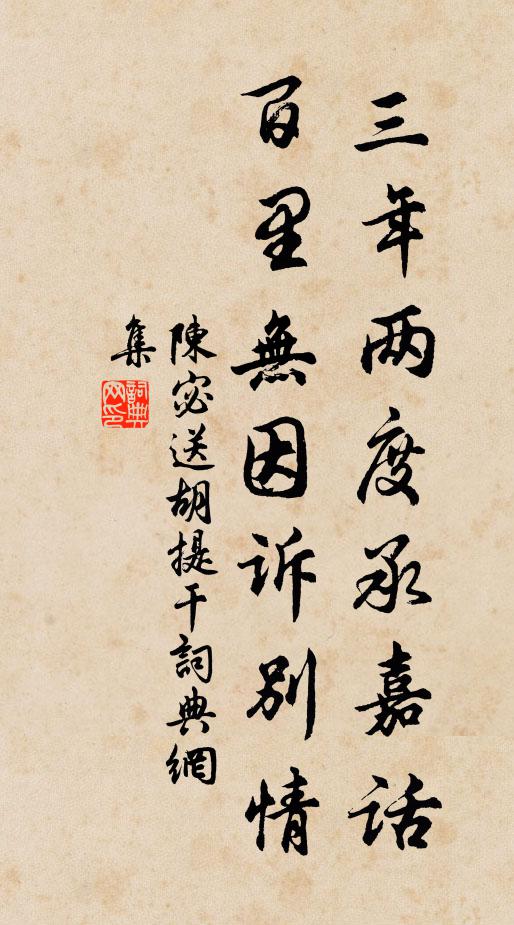 三年两度承嘉話
百里無因訴别情
陳宓送胡提干詞典網
集
詞典網印